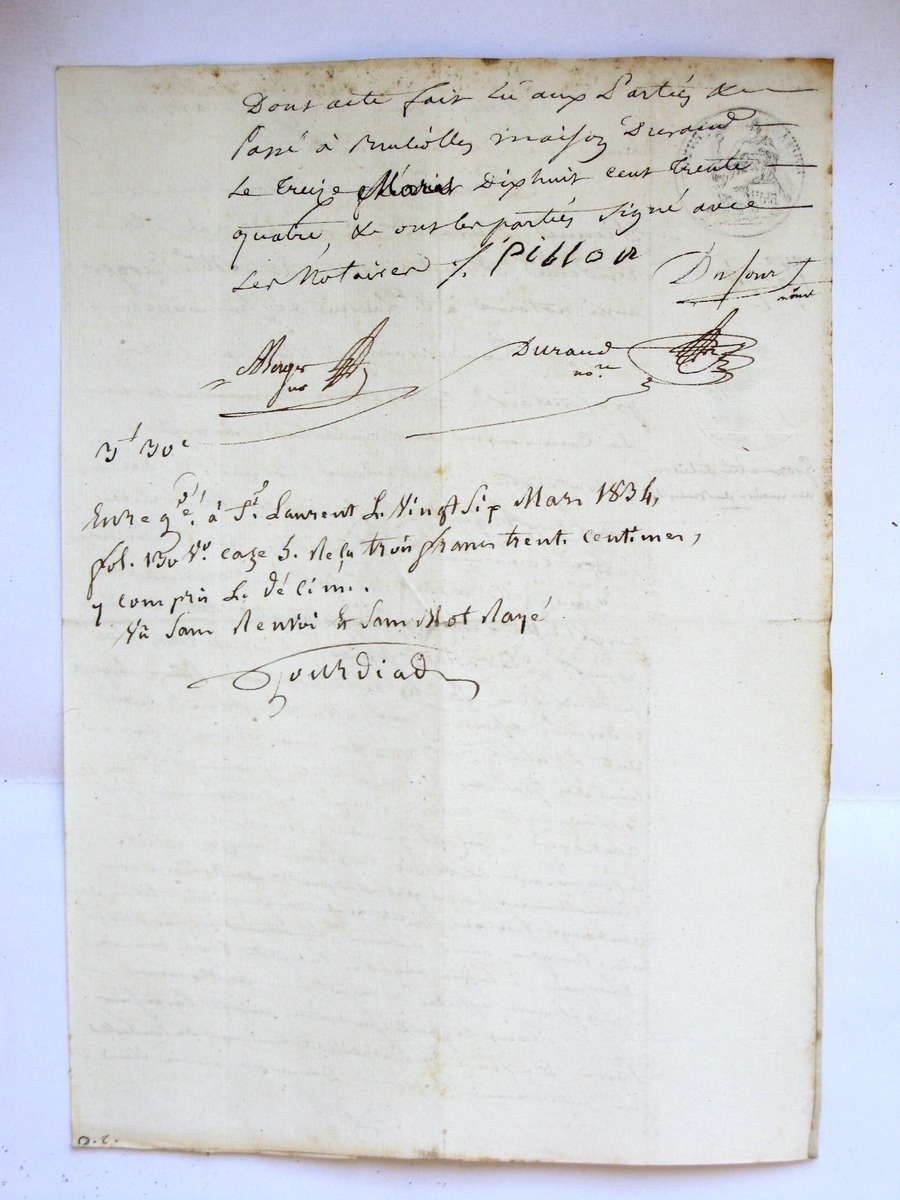 Dont acte fait lu aux Parties &
Passé à Brulliolles maison Durand
Le treize Mars Dixhuit cent trente
quatre, & ont les parties signé avec
Les Notaires ./. Pillon
Dufour
Berger
Durand
no.re
3f 30c
Enregé. à St. Laurent Le Vingt Six Mars 1834,
fol. 130 Vo. caze 5. Reçu trois francs trente centimes,
y compris Le Décime.
Vu Sans Renvoi & Sans Mot Rayé
Gourdiad